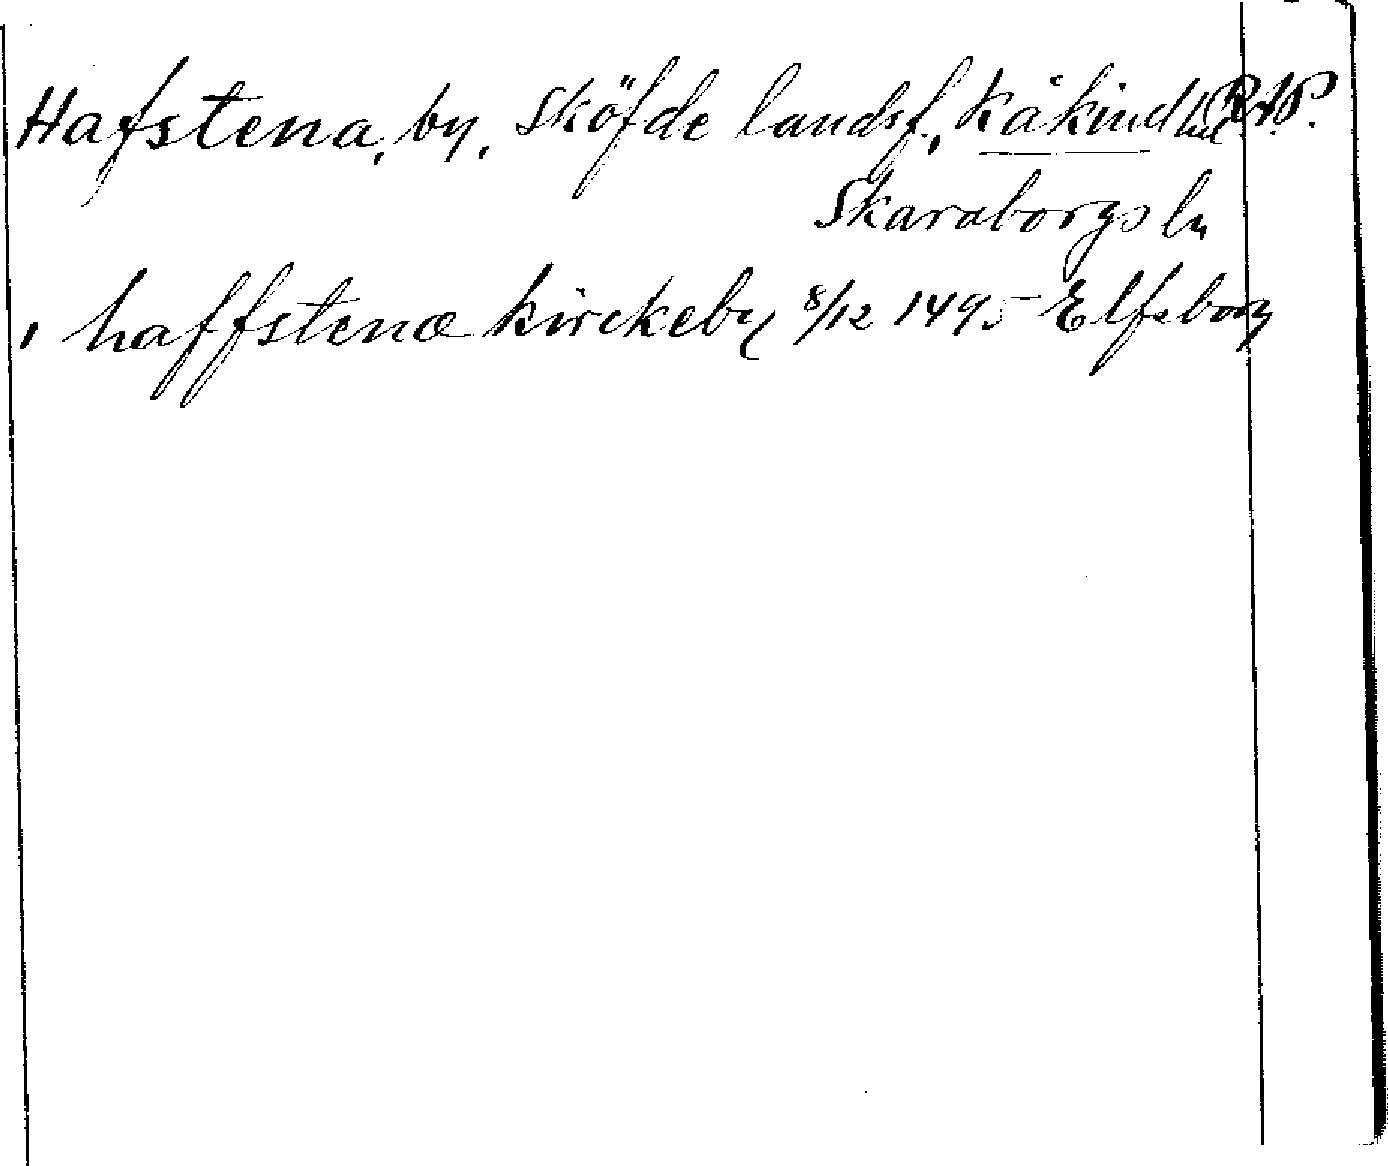 Hafstena, by, Sköfde landsf., Kåkind hd R.A.P.
Skaraborgs ln
i haffstena kirckeby 8/12 1495 Elfsborg